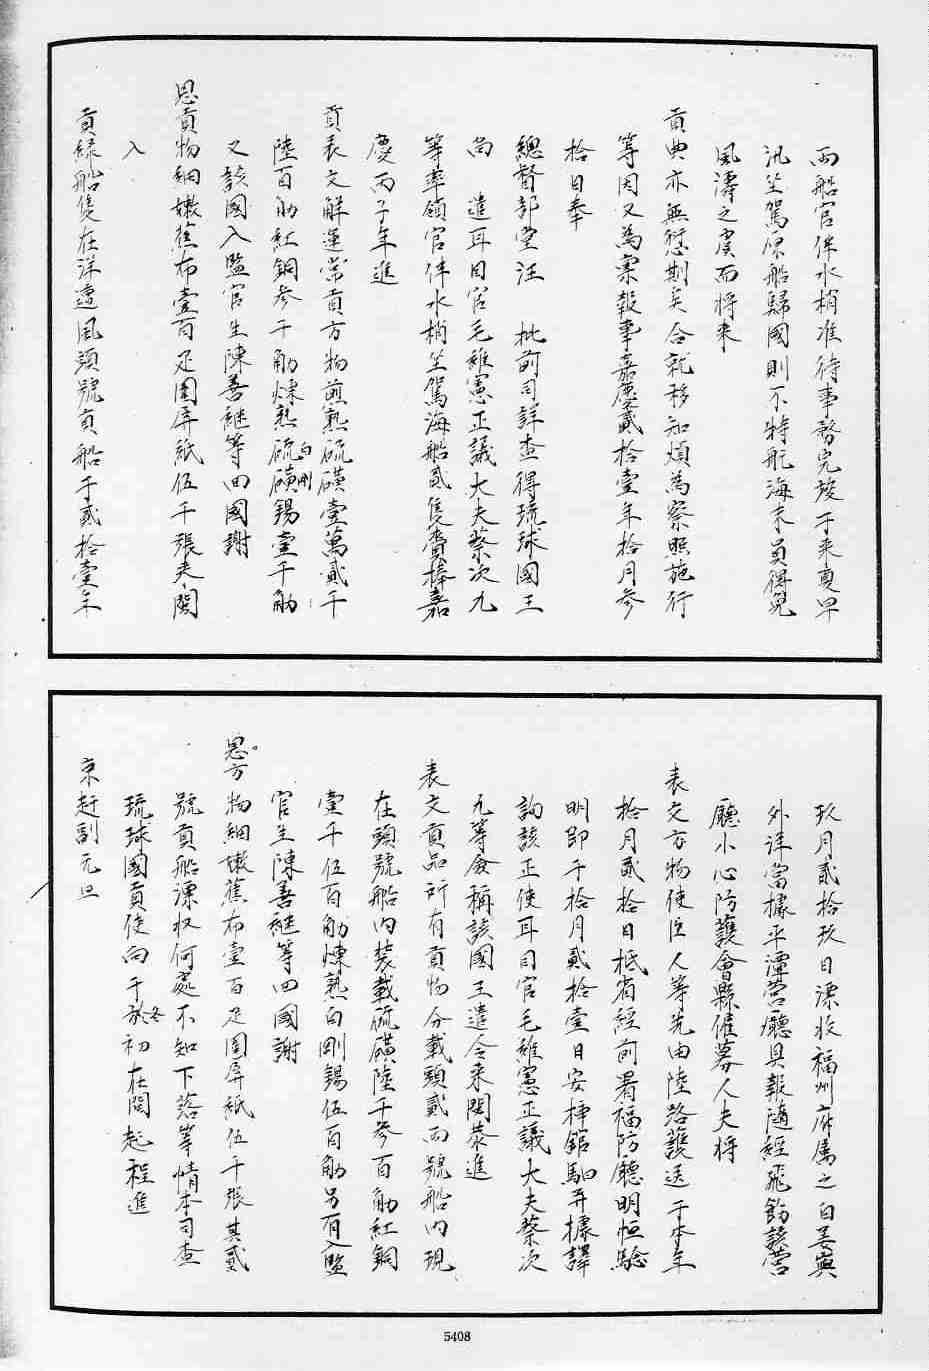 両船官伴水梢准待事務完竣于来夏早
汛坐駕原船歸國則不特航海末員得免
風濤之虞而将来
貢典亦無愆期矣合就移知煩為察照施行
等因又為稟報事嘉慶貳拾壹年拾月参
拾日奉
總督部堂汪　批前司詳查得琉球國王
尚　遣耳目官毛維憲正議大夫蔡次九
等率領官伴水梢坐駕海船貳隻賫捧嘉
慶丙子年進
貢表文觧運常貢方物煎熟硫磺壹萬貳千
陸百觔紅銅参千觔煉熟白剛錫壹千觔
又該國入監官生陳善継等回國謝
恩貢物細嫩蕉布壹百疋圍屏紙伍千張来閩
入
貢緣船隻在洋遭風頭號貢船于貳拾壹年
玖月貳拾玖日漂收福州府属之白姜嶼
外洋當據平潭營廳具報隨經飛飭該營
廳小心防護會縣催募人夫将
表文方物使臣人等先由陸路護送于本年
拾月貳拾日抵省經前署福防廳明恒驗
明即于拾月貳拾壹日安揷舘驲并據譯
詢該正使耳目官毛維憲正議大夫蔡次
九等僉稱該國王遣令来閩恭進
表文貢品所有貢物分載頭貳両號船内現
在頭號船内装載硫磺陸千参百觔紅銅
壹千伍百觔煉熟白剛錫伍百觔另有入監
官生陳善継等回國謝
恩方物細嫩蕉布壹百疋圍屏紙伍千張其貳
號貢船漂收何處不知下落等情本司查
琉球國貢使向于冬初在閩起程進
京赶副元旦
5408